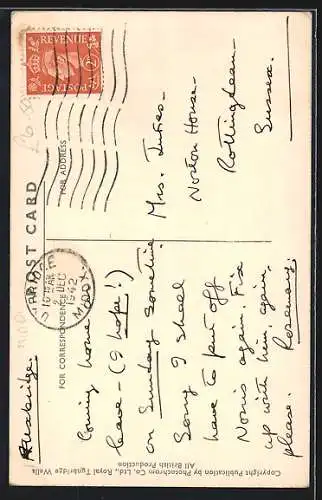 POST CARD
FOR CORRESPONDENCE
FOR ADDRESS
POSTAGE
REVENUE
UXBRIDGE
2 DEC
1942
MIDDX
Uxbridge.
Coming home
leave – (I hope!)
on Sunday sometime
Sorry I shall
have to put off
Norris again. Fix
up with him, again,
please. Rosemary.
Mrs.
Norton House –
Rottingdean –
Sussex.
Copyright Publication by Photochrom Co., Ltd., Royal Tunbridge Wells
All British Production